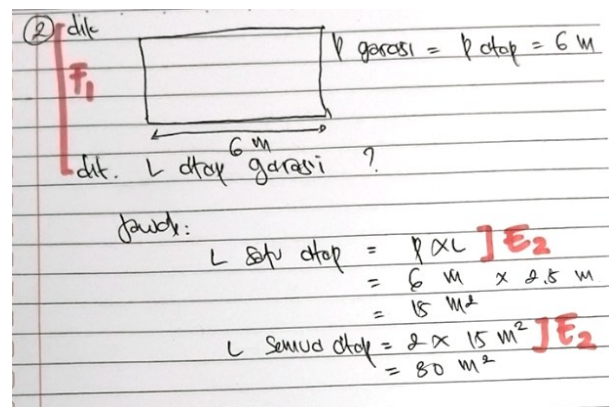 ② dik
F₁
p garasi = p atap = 6 m
6 m
dit. L atap garasi ?
Jawab:
L satu atap = p x L ] E₂
= 6 m x 2.5 m
= 15 m²
L semua atap = 2 x 15 m² ] E₂
= 30 m²